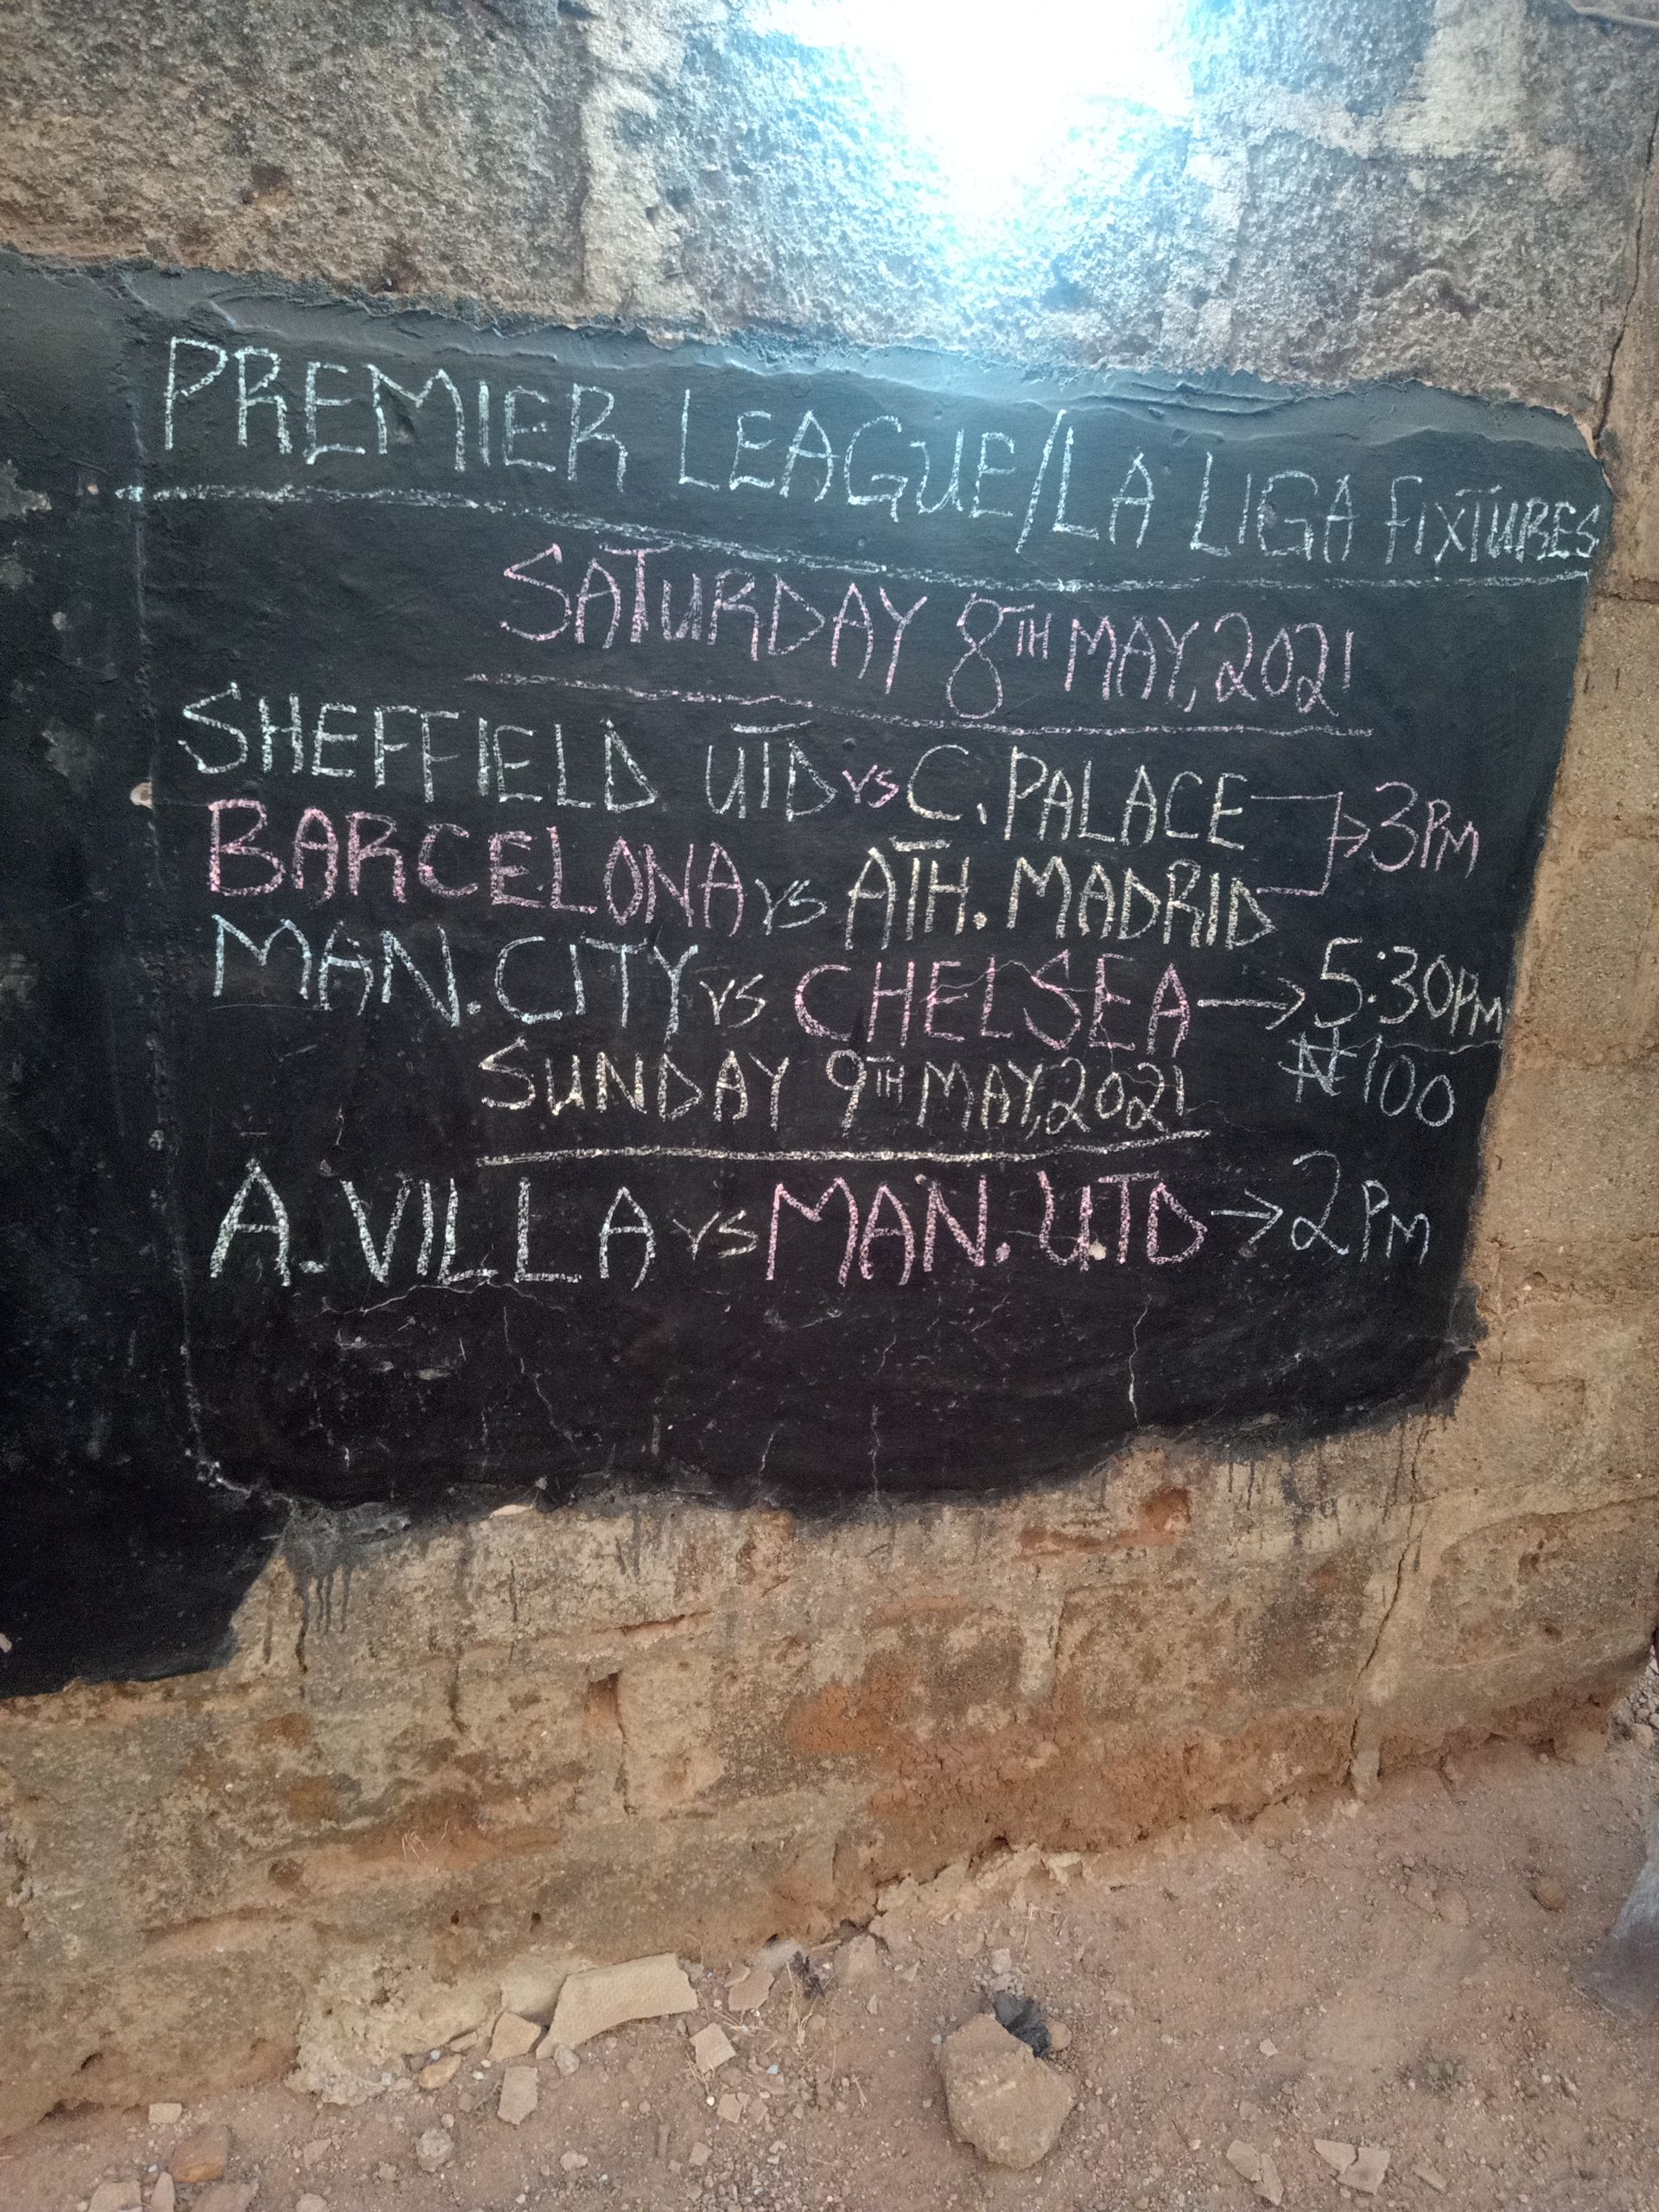 PREMIER LEAGUE/LA LIGA FIXTURES
SATURDAY 8TH MAY, 2021
SHEFFIELD UTD VS C. PALACE
BARCELONA VS ATH. MADRID → 3PM
MAN. CITY VS CHELSEA → 5:30PM
₦100
SUNDAY 9TH MAY, 2021
A. VILLA VS MAN. U.TD → 2PM